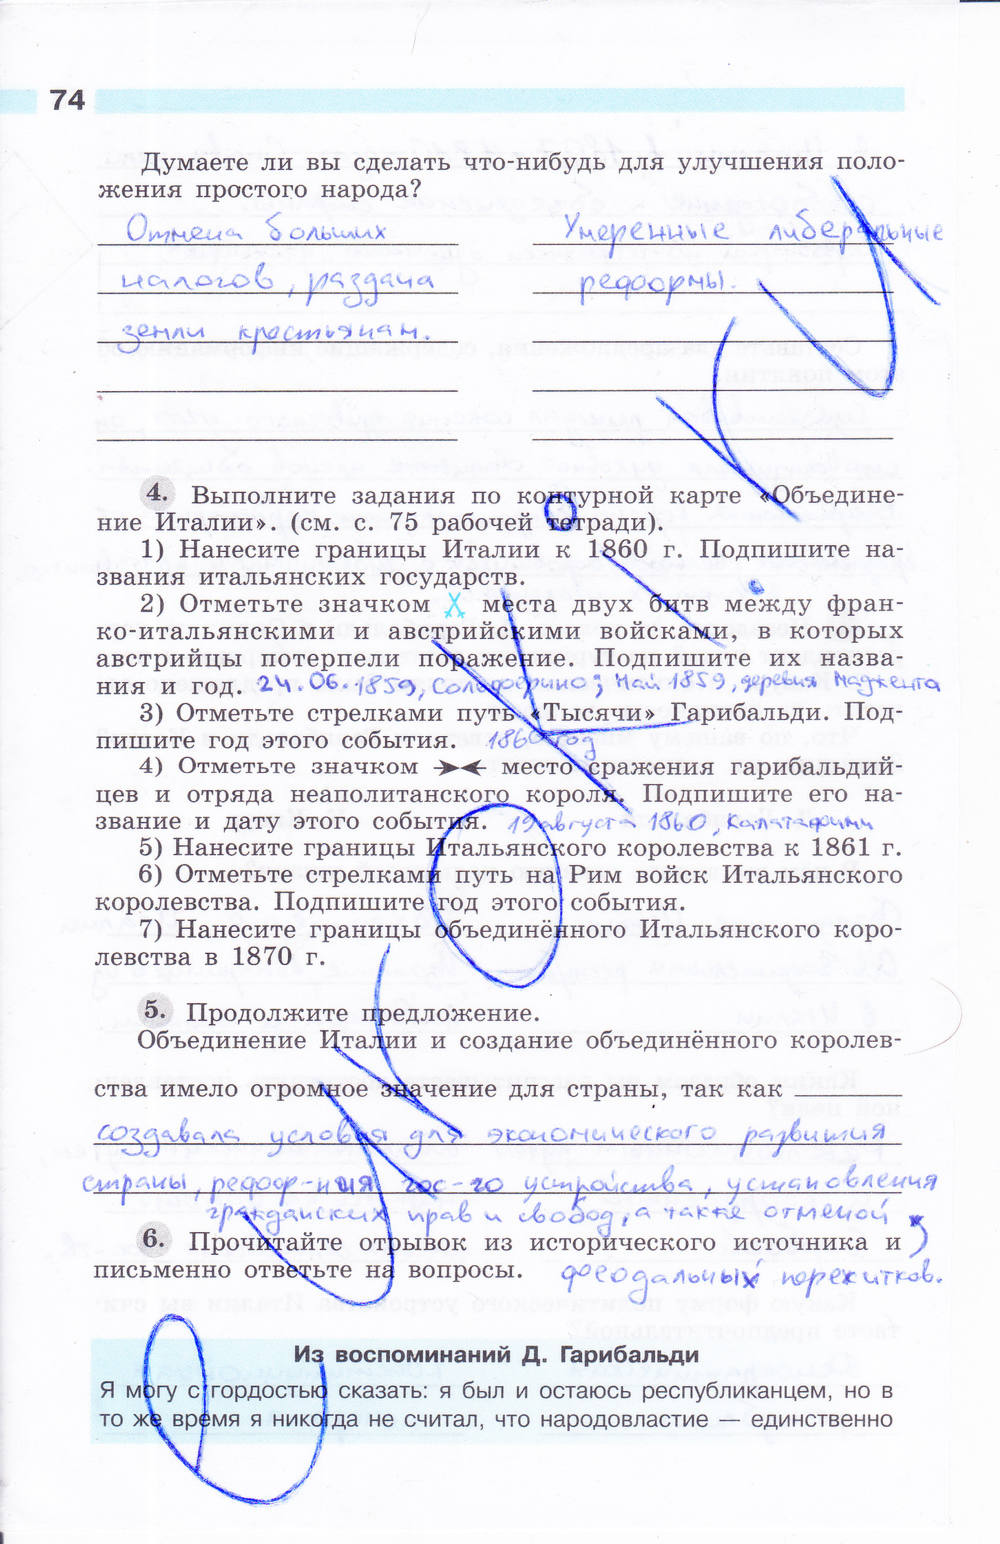 74
Думаете ли вы сделать что-нибудь для улучшения поло-
жения простого народа?
Отмена больших
налогов, раздача
земли крестьянам.
Умеренные либеральные
реформы.
4. Выполните задания по контурной карте «Объедине-
ние Италии». (см. с. 75 рабочей тетради).
1) Нанесите границы Италии к 1860 г. Подпишите на-
звания итальянских государств.
2) Отметьте значком места двух битв между фран-
ко-итальянскими и австрийскими войсками, в которых
австрийцы потерпели поражение. Подпишите их назва-
ния и год. 24.06.1859, Сольферино; Май 1859, деревня Маджента
3) Отметьте стрелками путь «Тысячи» Гарибальди. Под-
пишите год этого события. 1860 год
4) Отметьте значком место сражения гарибальдий-
цев и отряда неаполитанского короля. Подпишите его на-
звание и дату этого события. 19 августа 1860, Калатафими
5) Нанесите границы Итальянского королевства к 1861 г.
6) Отметьте стрелками путь на Рим войск Итальянского
королевства. Подпишите год этого события.
7) Нанесите границы объединённого Итальянского коро-
левства в 1870 г.
5. Продолжите предложение.
Объединение Италии и создание объединённого королев-
ства имело огромное значение для страны, так как
создавала условия для экономического развития
страны, рефор-ния гос-го устройства, установления
гражданских прав и свобод, а также отменой
6. Прочитайте отрывок из исторического источника и
письменно ответьте на вопросы. феодальных пережитков.
Из воспоминаний Д. Гарибальди
Я могу с гордостью сказать: я был и остаюсь республиканцем, но в
то же время я никогда не считал, что народовластие — единственно